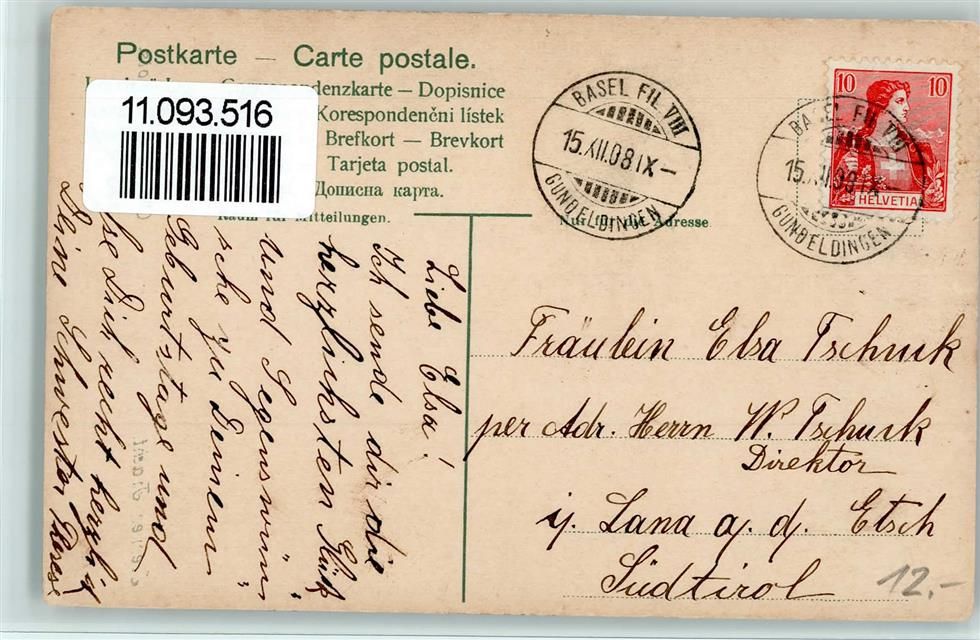 Postkarte — Carte postale.
11.093.516
denzkarte — Dopisnice
Korespondenční lístek
Brefkort — Brevkort
Tarjeta postal.
Дописна карта.
Raum für Mitteilungen.
Nur für die Adresse
BASEL FIL. VIII
15.XII.08.IX—
GUNDELDINGEN
BASEL FIL. VIII
15.XII.08.IX—
GUNDELDINGEN
10 10
HELVETIA
Liebe Elsa!
Ich sende dir die
herzlichsten Glück
und Segenswün
sche zu Deinem
Geburtstage und
Dich recht herzlich
Deine Schwester Therese
Fräulein Elsa Tschurk
per Adr. Herrn W. Tschurk
Direktor
ij. Lana a. d. Etsch
Südtirol
12.-